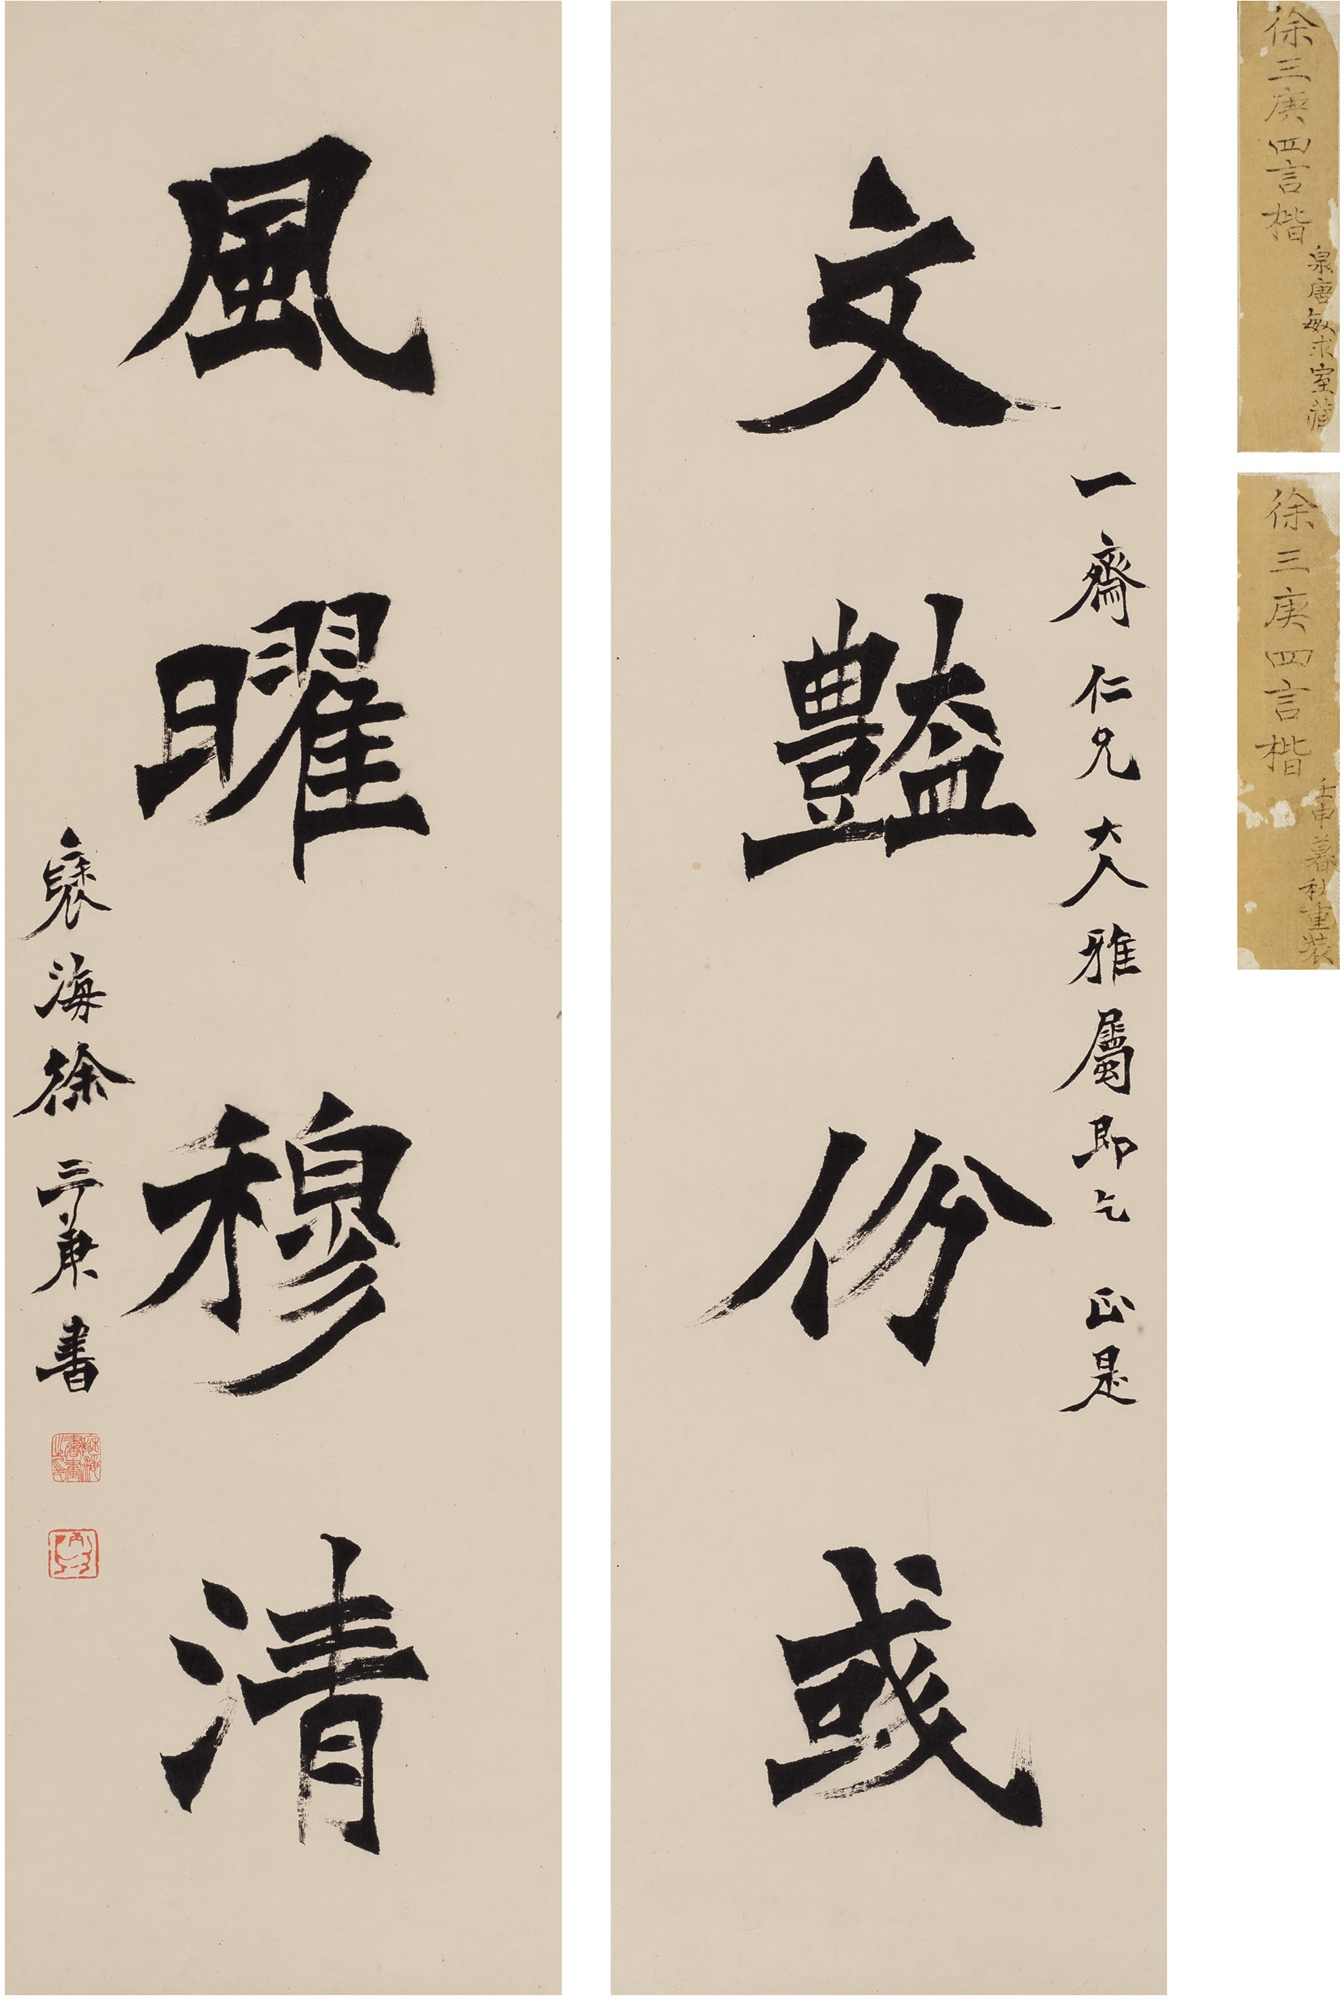 文豔份彧
一齋仁兄大人雅屬即乞 正是
風曜穆清
褎海徐三庚書
徐三庚四言楷
泉唐敏求室藏
徐三庚四言楷
壬申暮秋重裝